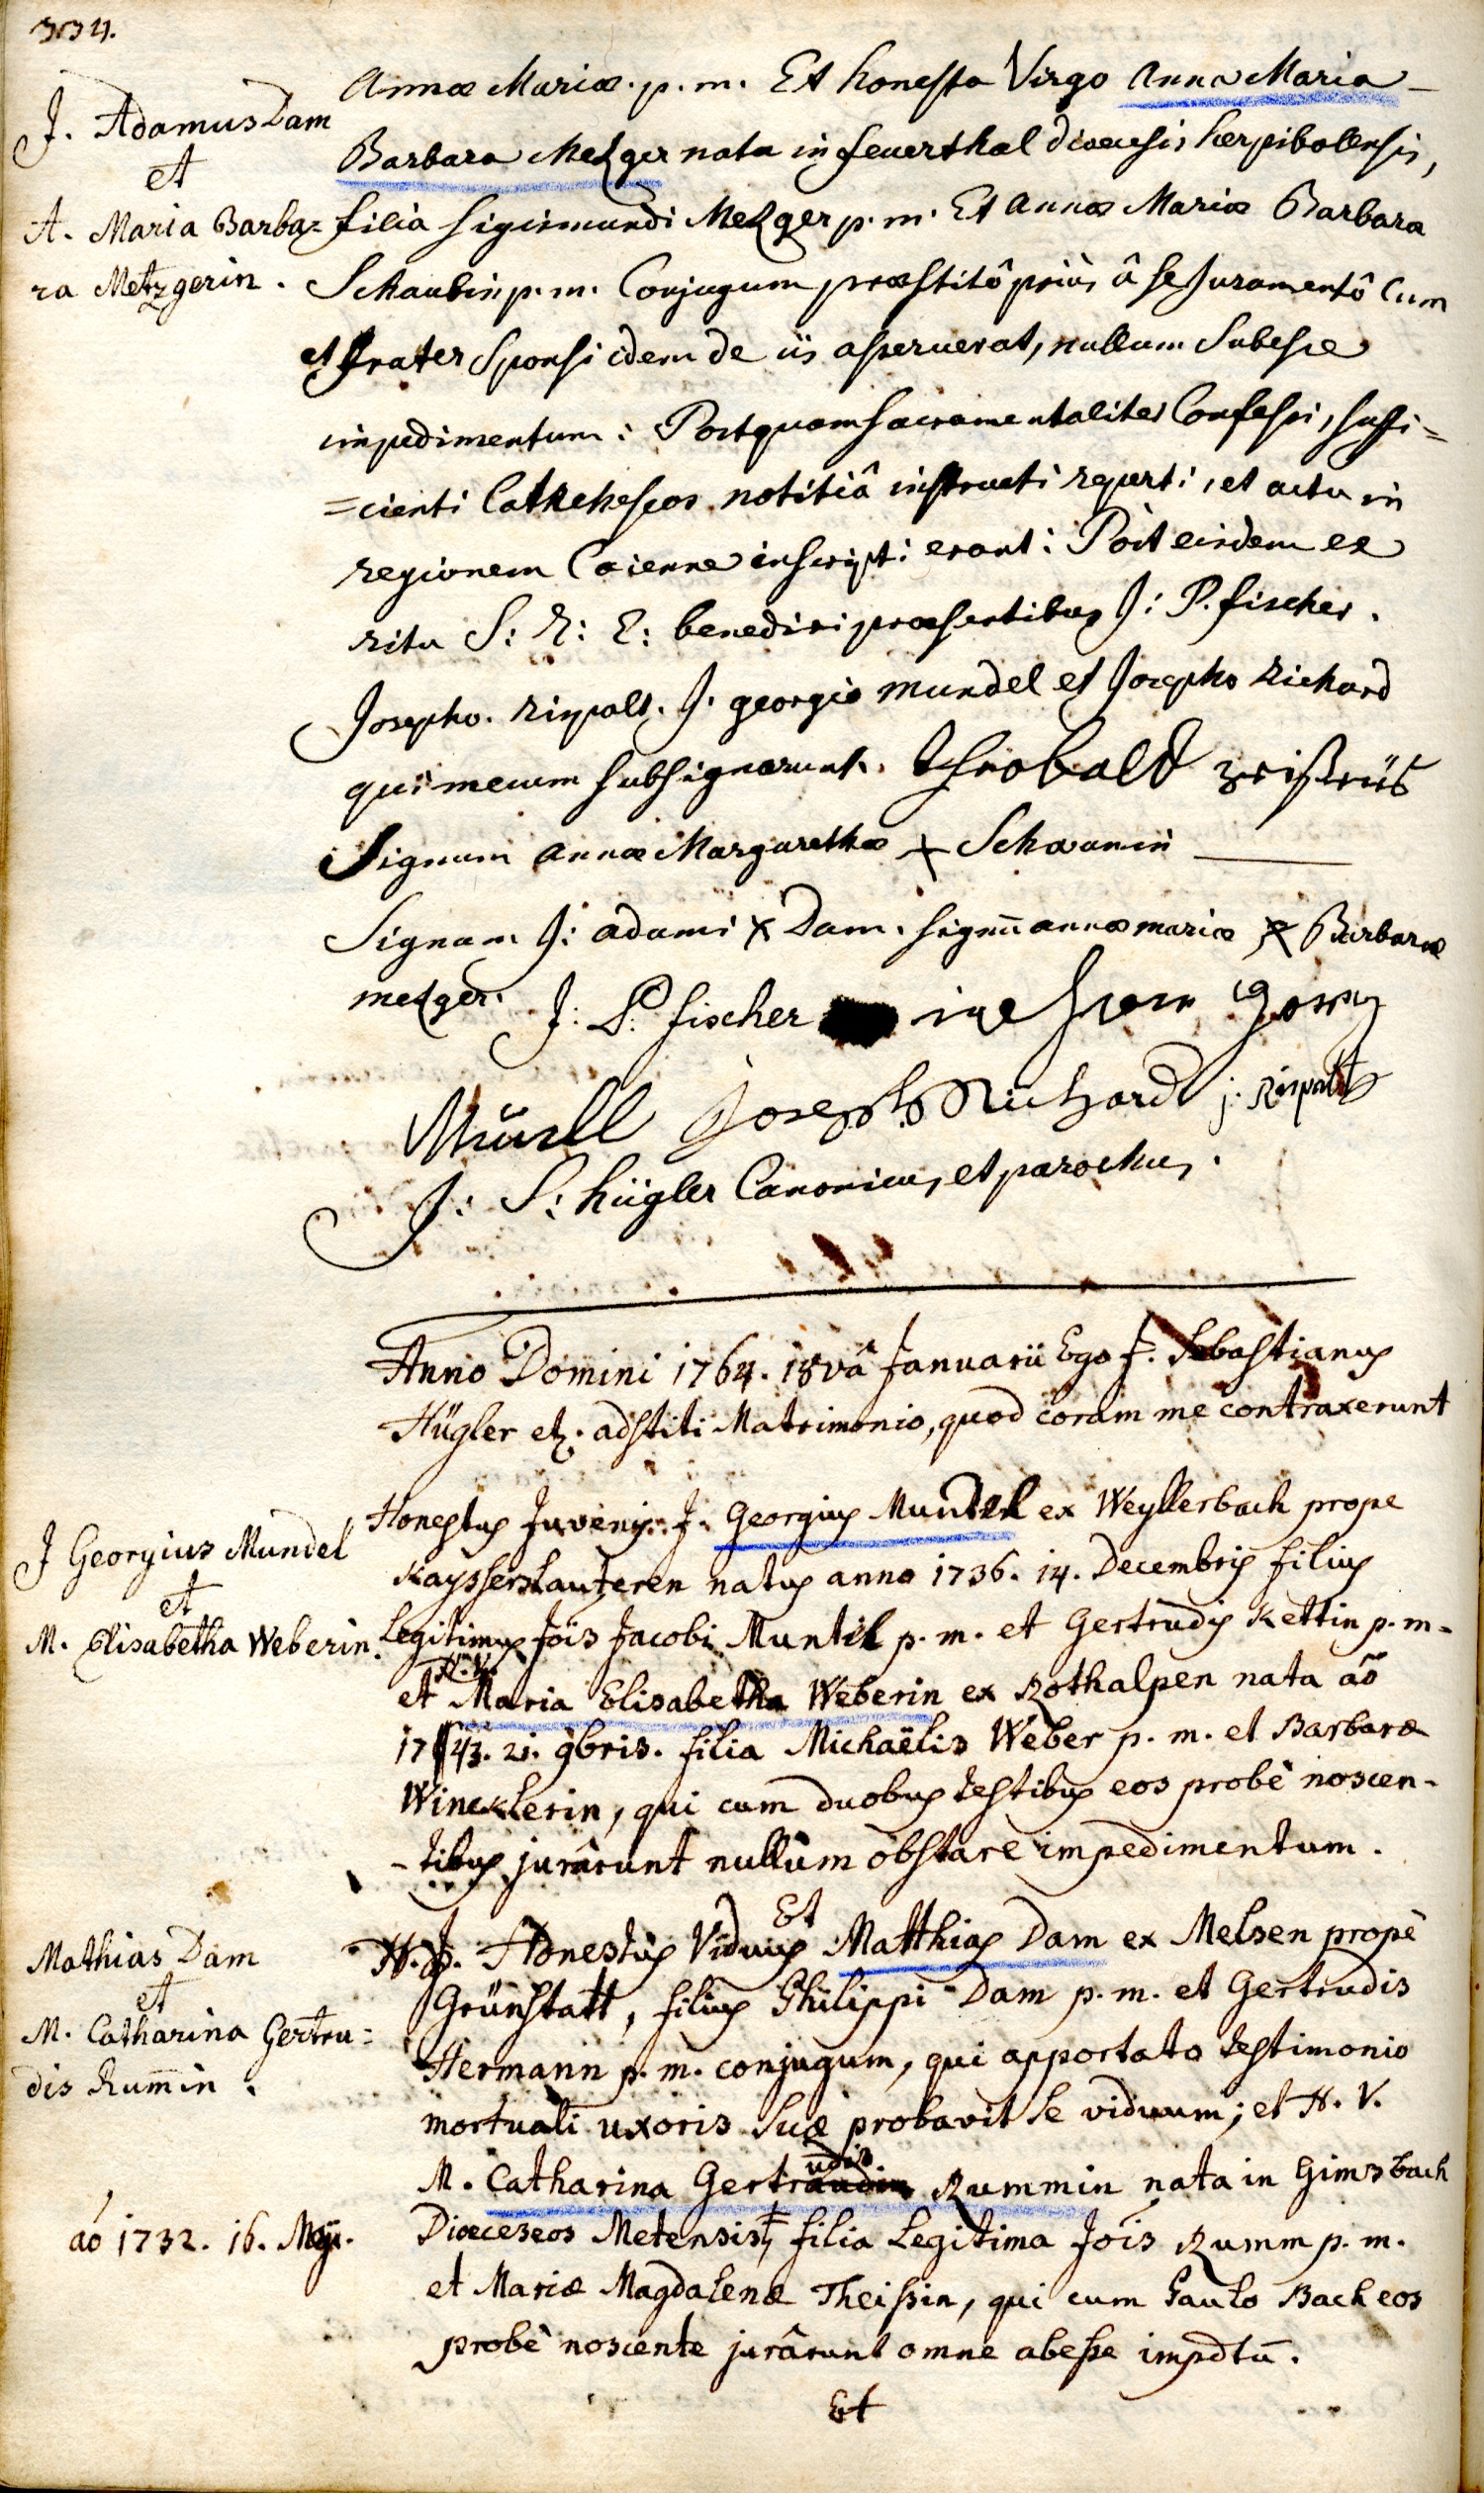 334.
J. Adamus Dam
et
A. Maria Barba=
ra Metzgerin.
Annæ Mariæ. p. m. Et honesta Virgo Anna Maria
Barbara Mezger nata in feuerthal diœcesis herpibolensis,
filia sigismundi Mezger p. m. Et Annæ Mariæ Barbara
Schaubin p. m. Conjugum præstitô priùs â se Juramentô Cum
et frater Sponsi idem de iis asseruerat, nullum Subesse
impedimentum: Postquam sacramentaliter Confessi, suffi=
=cienti Catheheseos notitiâ instructi reperti, et actu in
regionem Caienne inscripti erant: Post eisdem ex
ritu S: R: E: benedixi præsentibus J: P. fischer.
Josepho. rispalt. J. georgio mundel et Josepho Richard
qui mecum subsignarunt.
Signum annæ Margarethæ + Schaunin
Signum J: adami x Dam. signū annæ mariæ x Barbaræ
mezger. J: P: fischer
Joseph Richard j: Rispalt
J: S: hügler Canonicus et parochus.
Anno Domini 1764. 18vâ Januarii Ego J. Sebastianus
Hügler etz. adstiti Matrimonio, quod coram me contraxerunt
J Georgius Mundel
et
M. Elisabetha Weberin.
Honestus Juvenis J. Georgius Mundel ex Weyllerbach prope
Kaysserslauteren natus anno 1736. 14. Decembris filius
Legitimus Jois Jacobi Muntil p. m. et Gertrudis Kettin p. m.
H. V.
et Maria Elisabetha Weberin ex Rothalpen nata aō
1743. 21. 9bris. filia Michaëlis Weber p. m. et Barbaræ
Wincklerin, qui cum duobus testibus eos probè noscen-
-tibus jurârunt nullum obstare impedimentum.
Et
Mathias Dam
et
M. Catharina Gertru=
dis Rum̄in.
H. J. Honestus Viduus Matthias Dam ex Melsen propè
Grünstatt, filius Philippi Dam p. m. et Gertrudis
Hermann p. m. conjugum, qui apportato testimonio
mortuali uxoris suæ probavit se viduum; et H. V.
udis
M. Catharina Gertraudin Rummin nata in Gimsbach
aō 1732. 16. Maji.
Diœceseos Metensis, filia Legitima Jois Rumm p. m.
et Mariæ Magdalenæ Theissin, qui cum Paulo Bach eos
probè noscente jurârunt omne abesse impdtū.
Et